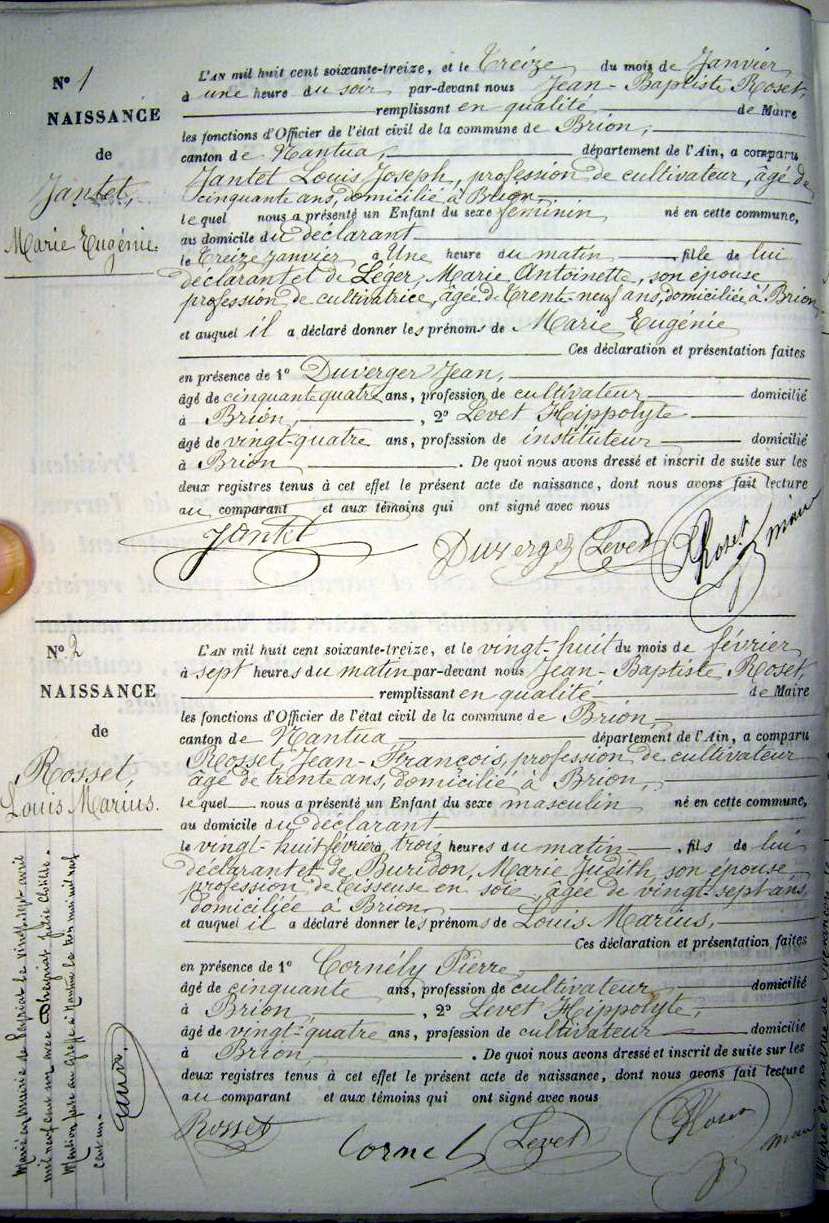 N° 1
NAISSANCE
de
Jantet,
Marie Eugénie.
L'AN mil huit cent soixante-treize, et le Treize du mois de Janvier
à une heure du soir par-devant nous Jean-Baptiste Roset,
remplissant en qualité de Maire
les fonctions d'Officier de l'état civil de la commune de Brion,
canton de Nantua, département de l'Ain, a comparu
Jantet Louis Joseph, profession de cultivateur, âgé de
cinquante ans, domicilié à Brion,
lequel nous a présenté un Enfant du sexe féminin né en cette commune,
au domicile du déclarant
le Treize janvier à Une heure du matin, fille de lui
déclarant et de Léger, Marie Antoinette, son épouse
profession de cultivatrice, âgée de trente-neuf ans, domiciliée à Brion,
et auquel il a déclaré donner les prénoms de Marie Eugénie
Ces déclaration et présentation faites
en présence de 1° Duverger Jean,
âgé de cinquante quatre ans, profession de cultivateur domicilié
à Brion, , 2° Levet Hippolyte
âgé de vingt-quatre ans, profession de instituteur domicilié
à Brion . De quoi nous avons dressé et inscrit de suite sur les
deux registres tenus à cet effet le présent acte de naissance, dont nous avons fait lecture
au comparant et aux témoins qui ont signé avec nous
Jantet Duverger Levet Roset maire
N° 2
NAISSANCE
de
Rosset,
Louis Marius.
L'AN mil huit cent soixante-treize, et le vingt-huit du mois de février
à sept heures du matin par-devant nous Jean-Baptiste Roset,
remplissant en qualité de Maire
les fonctions d'Officier de l'état civil de la commune de Brion,
canton de Nantua département de l'Ain, a comparu
Rosset, Jean-François, profession de cultivateur
âgé de trente ans, domicilié à Brion,
lequel nous a présenté un Enfant du sexe masculin né en cette commune,
au domicile du déclarant
le vingt-huit février à trois heures du matin, fils de lui
déclarant et de Buridon, Marie Judith, son épouse,
profession de tisseuse en soie, âgée de vingt-sept ans
domiciliée à Brion,
et auquel il a déclaré donner les prénoms de Louis Marius,
Ces déclaration et présentation faites
en présence de 1° Cornély Pierre,
âgé de cinquante ans, profession de cultivateur domicilié
à Brion, , 2° Levet Hippolyte,
âgé de vingt-quatre ans, profession de cultivateur domicilié
à Brion, . De quoi nous avons dressé et inscrit de suite sur les
deux registres tenus à cet effet le présent acte de naissance, dont nous avons fait lecture
au comparant et aux témoins qui ont signé avec nous
Rosset Cornel Levet Roset maire
Marié en mairie de Peyriat le vingt-sept avril
mil neuf cent un avec Julie
Mention faite au Greffe à Nantua le mai mil neuf
cent un